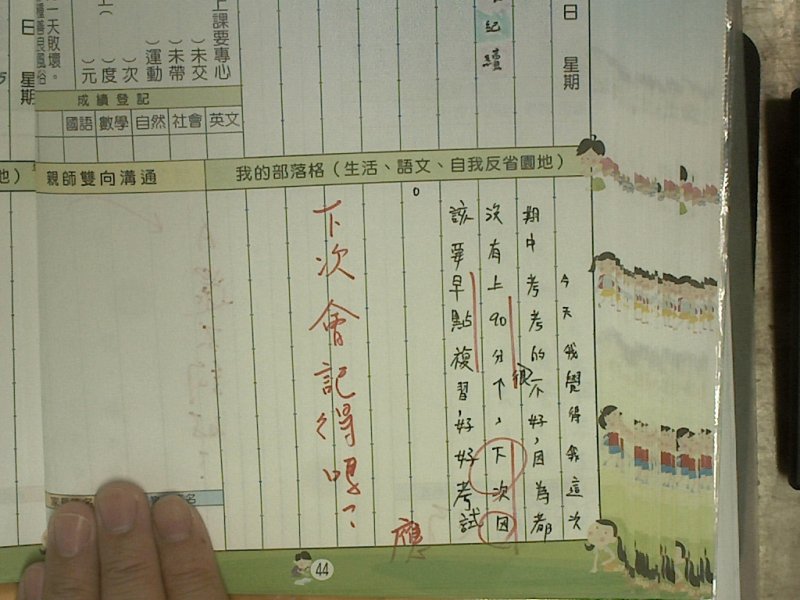 日 星期
紀續
上課要專心
）未交
）未帶
）運動
）次
）度
）元
一天敗壞。
善良風俗
日 星期
成績登記
國語 數學 自然 社會 英文
親師雙向溝通
我的部落格（生活、語文、自我反省園地）
今天我覺得我這次
期中考考的不好，因為都
很
沒有上90分个，下次因
應
該要早點複習，好好考試
。
下次會記得嗎？
44